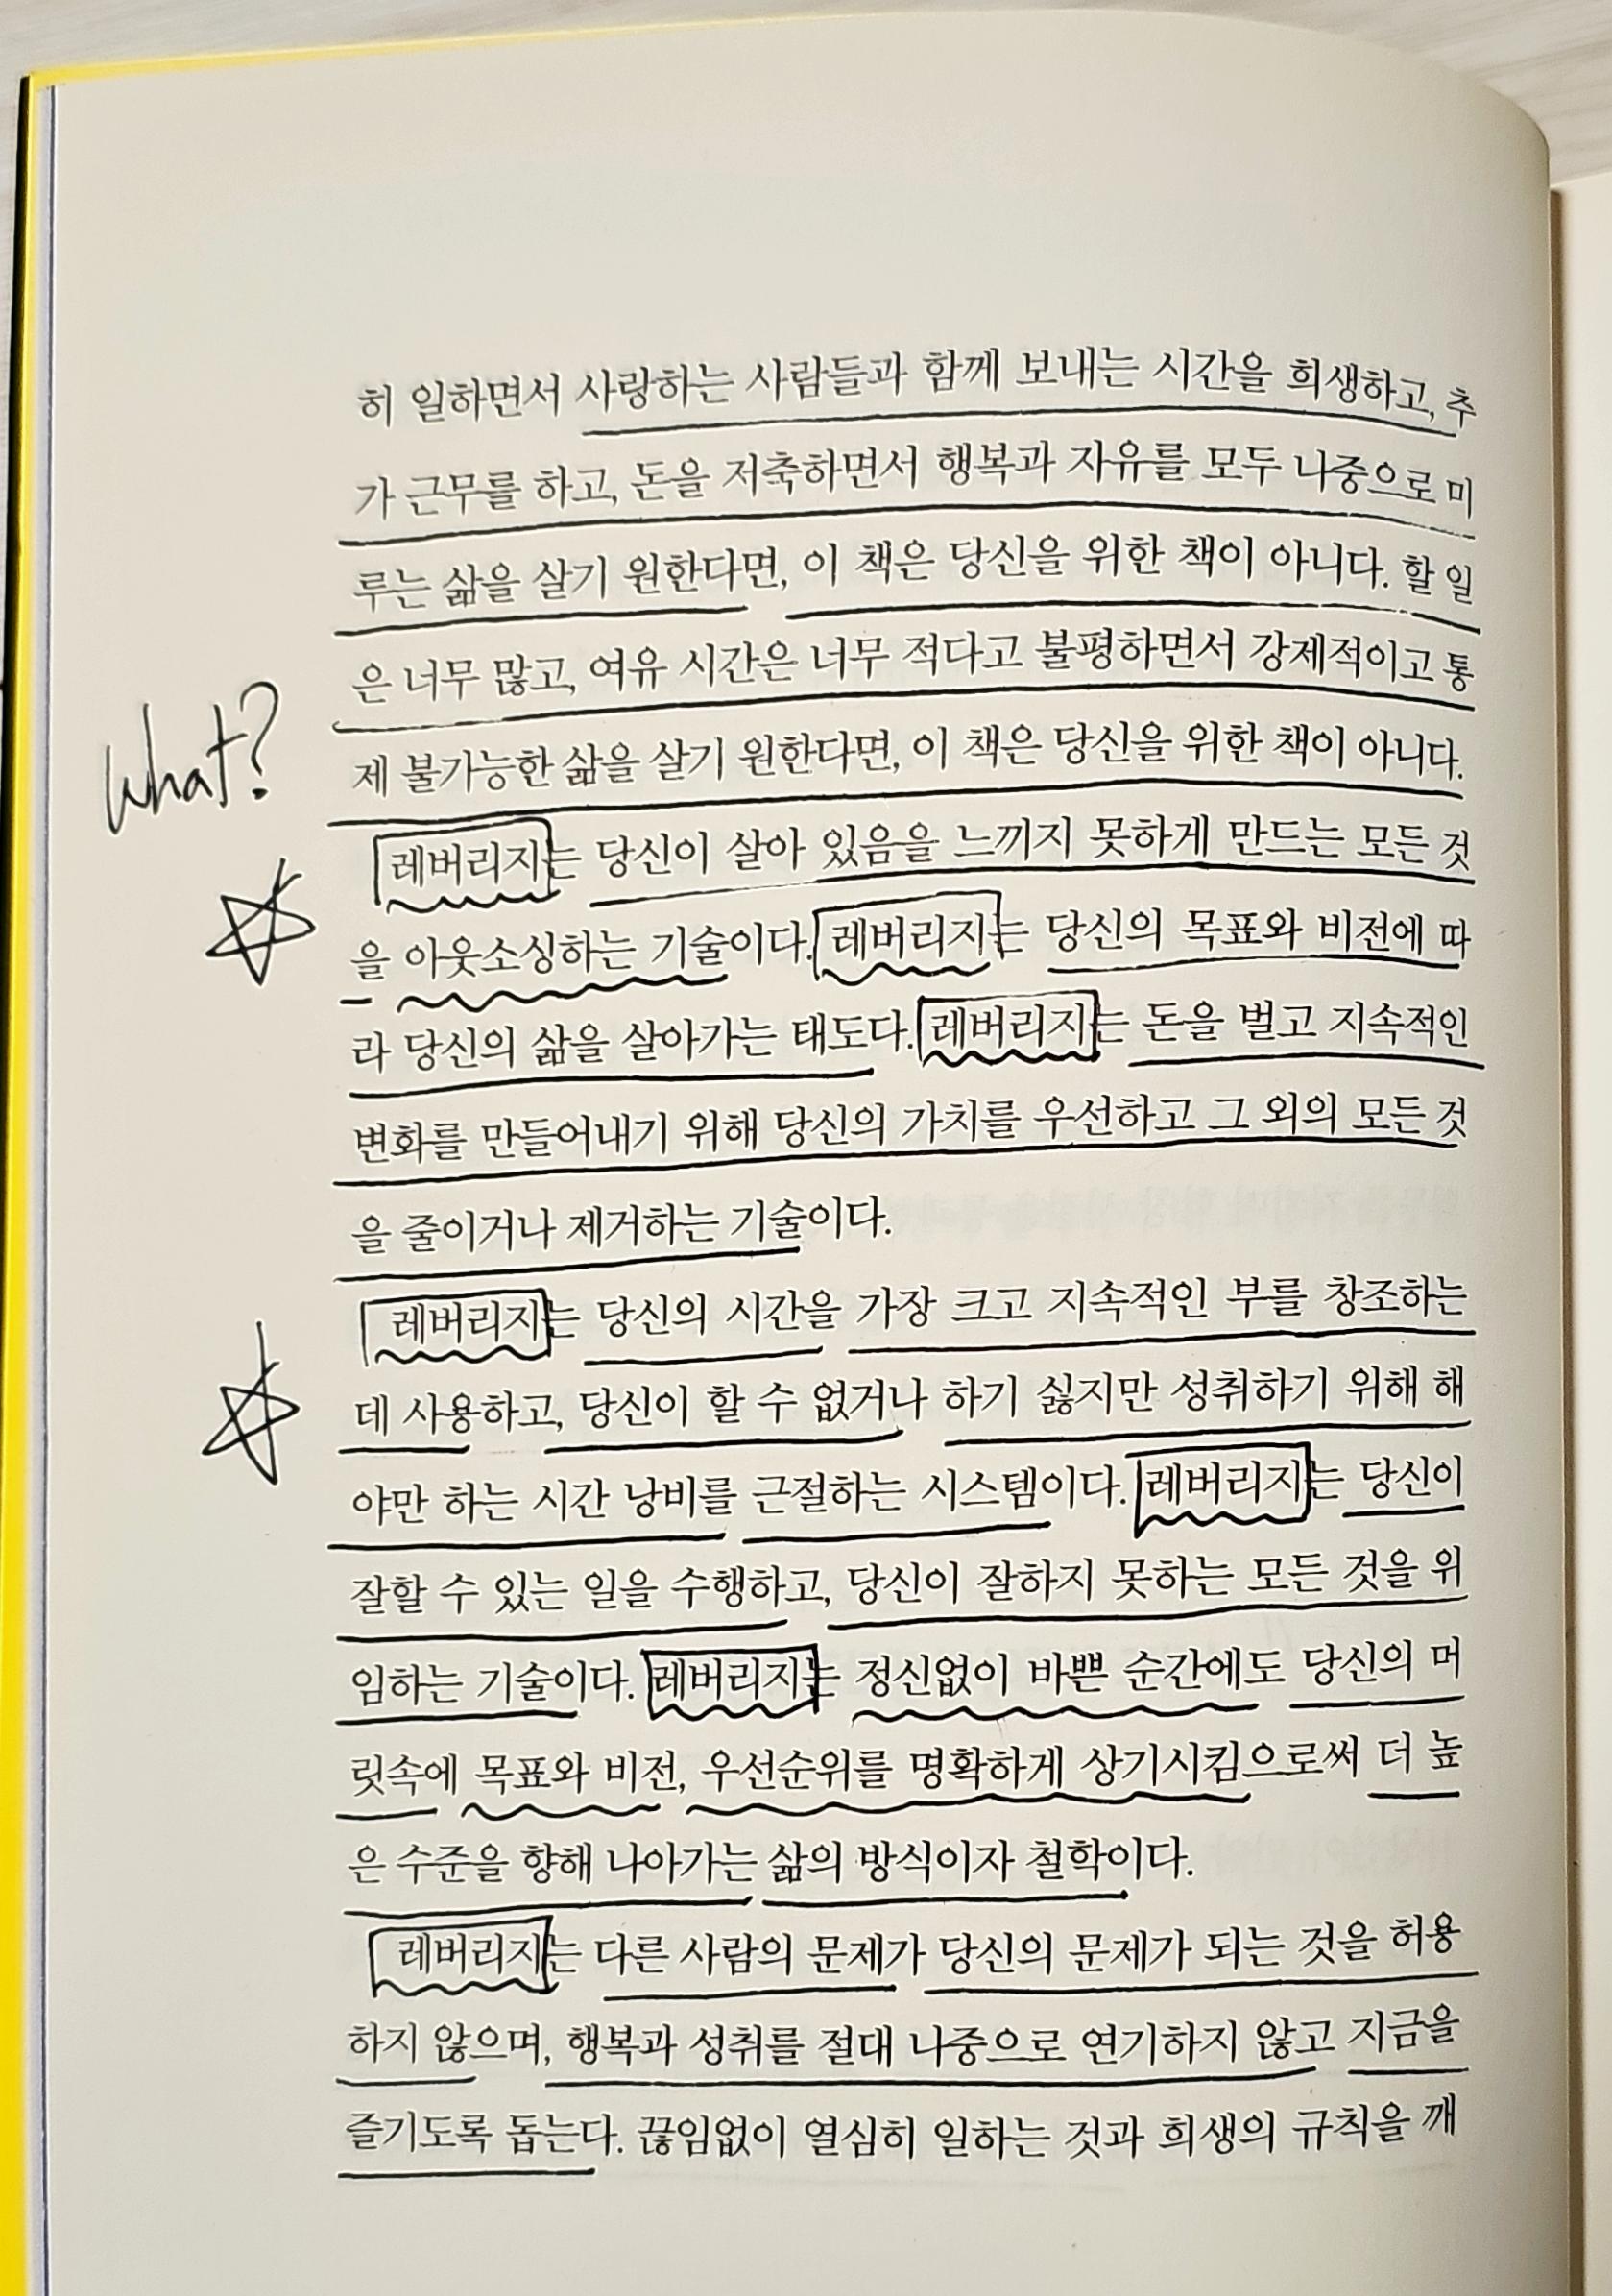 히 일하면서 사랑하는 사람들과 함께 보내는 시간을 희생하고, 추
가 근무를 하고, 돈을 저축하면서 행복과 자유를 모두 나중으로 미
루는 삶을 살기 원한다면, 이 책은 당신을 위한 책이 아니다. 할 일
은 너무 많고, 여유 시간은 너무 적다고 불평하면서 강제적이고 통
what?
제 불가능한 삶을 살기 원한다면, 이 책은 당신을 위한 책이 아니다.
레버리지는 당신이 살아 있음을 느끼지 못하게 만드는 모든 것
을 아웃소싱하는 기술이다. 레버리지는 당신의 목표와 비전에 따
라 당신의 삶을 살아가는 태도다. 레버리지는 돈을 벌고 지속적인
변화를 만들어내기 위해 당신의 가치를 우선하고 그 외의 모든 것
을 줄이거나 제거하는 기술이다.
레버리지는 당신의 시간을 가장 크고 지속적인 부를 창조하는
데 사용하고, 당신이 할 수 없거나 하기 싫지만 성취하기 위해 해
야만 하는 시간 낭비를 근절하는 시스템이다. 레버리지는 당신이
잘할 수 있는 일을 수행하고, 당신이 잘하지 못하는 모든 것을 위
임하는 기술이다. 레버리지는 정신없이 바쁜 순간에도 당신의 머
릿속에 목표와 비전, 우선순위를 명확하게 상기시킴으로써 더 높
은 수준을 향해 나아가는 삶의 방식이자 철학이다.
레버리지는 다른 사람의 문제가 당신의 문제가 되는 것을 허용
하지 않으며, 행복과 성취를 절대 나중으로 연기하지 않고 지금을
즐기도록 돕는다. 끊임없이 열심히 일하는 것과 희생의 규칙을 깨